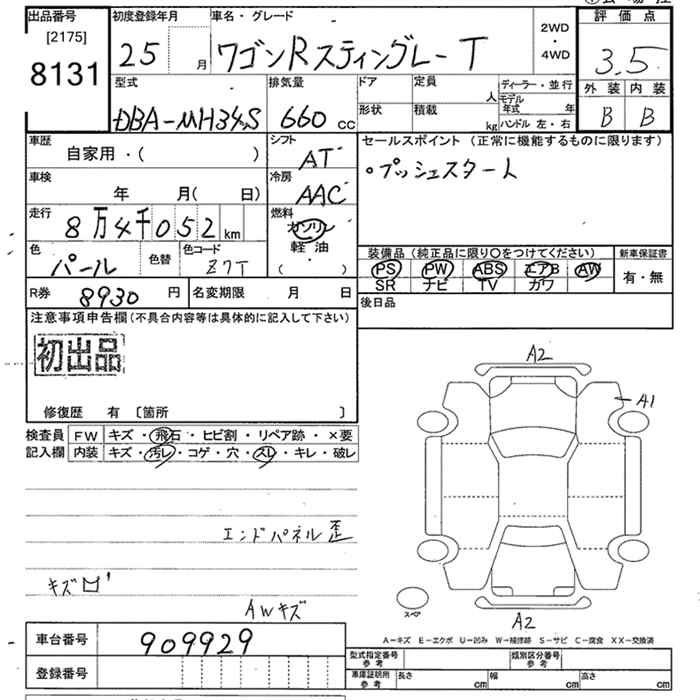 出品番号
[2175]
8131
初度登録年月
25 月
車名・グレード
ワゴンRスティングレーT
2WD
・
4WD
評価点
3.5
外装 内装
B B
型式
DBA-MH34S
排気量
660 cc
ドア
形状
定員
人
積載
kg
ディーラー・並行
モデル
年式 年
ハンドル 左・右
車歴
自家用・( )
シフト
AT
セールスポイント (正常に機能するものに限ります)
・プッシュスタート
車検
年 月( 日)
冷房
AAC
走行
8万4千052 km
燃料
ガソリン
・
軽油
・
( )
色
パール
色替
色コード
Z7T
装備品(純正品に限り○をつけてください)
PS PW ABS エアB AW
SR ナビ TV カワ
新車保証書
有・無
R券 8930 円
名変期限 月 日
後日品
注意事項申告欄(不具合内容等は具体的に記入して下さい)
初出品
修復歴 有 〔箇所 〕
検査員
記入欄
FW キズ・飛石・ヒビ割・リペア跡・×要
内装 キズ・汚レ・コゲ・穴・スレ・キレ・破レ
エンドパネル歪
キズ
AWキズ
A2
A1
スペア
A2
A-キズ E-エクボ U-凹み W-補修跡 S-サビ C-腐食 XX-交換済
車台番号 909929
登録番号
型式指定番号
参考
類別区分番号
参考
車庫証明用
参考
長さ cm
幅 cm
高さ cm